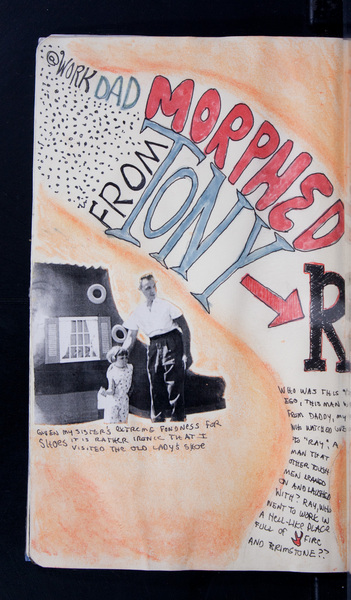 @WORK DAD
MORPHED
FROM
TONY
R
GIVEN MY SISTER'S EXTREME FONDNESS FOR
SHOES IT IS RATHER IRONIC THAT I
VISITED THE OLD LADY'S SHOE
WHO WAS THIS
EGO, THIS MAN
FROM DADDY, MY
WHO WATCHED
TO "RAY", A
MAN THAT
OTHER TOUGH
MEN LEANED
ON AND LAUGHED
WITH? RAY, WHO
WENT TO WORK IN
A HELL-LIKE PLACE
FULL OF FIRE
AND BRIMSTONE??